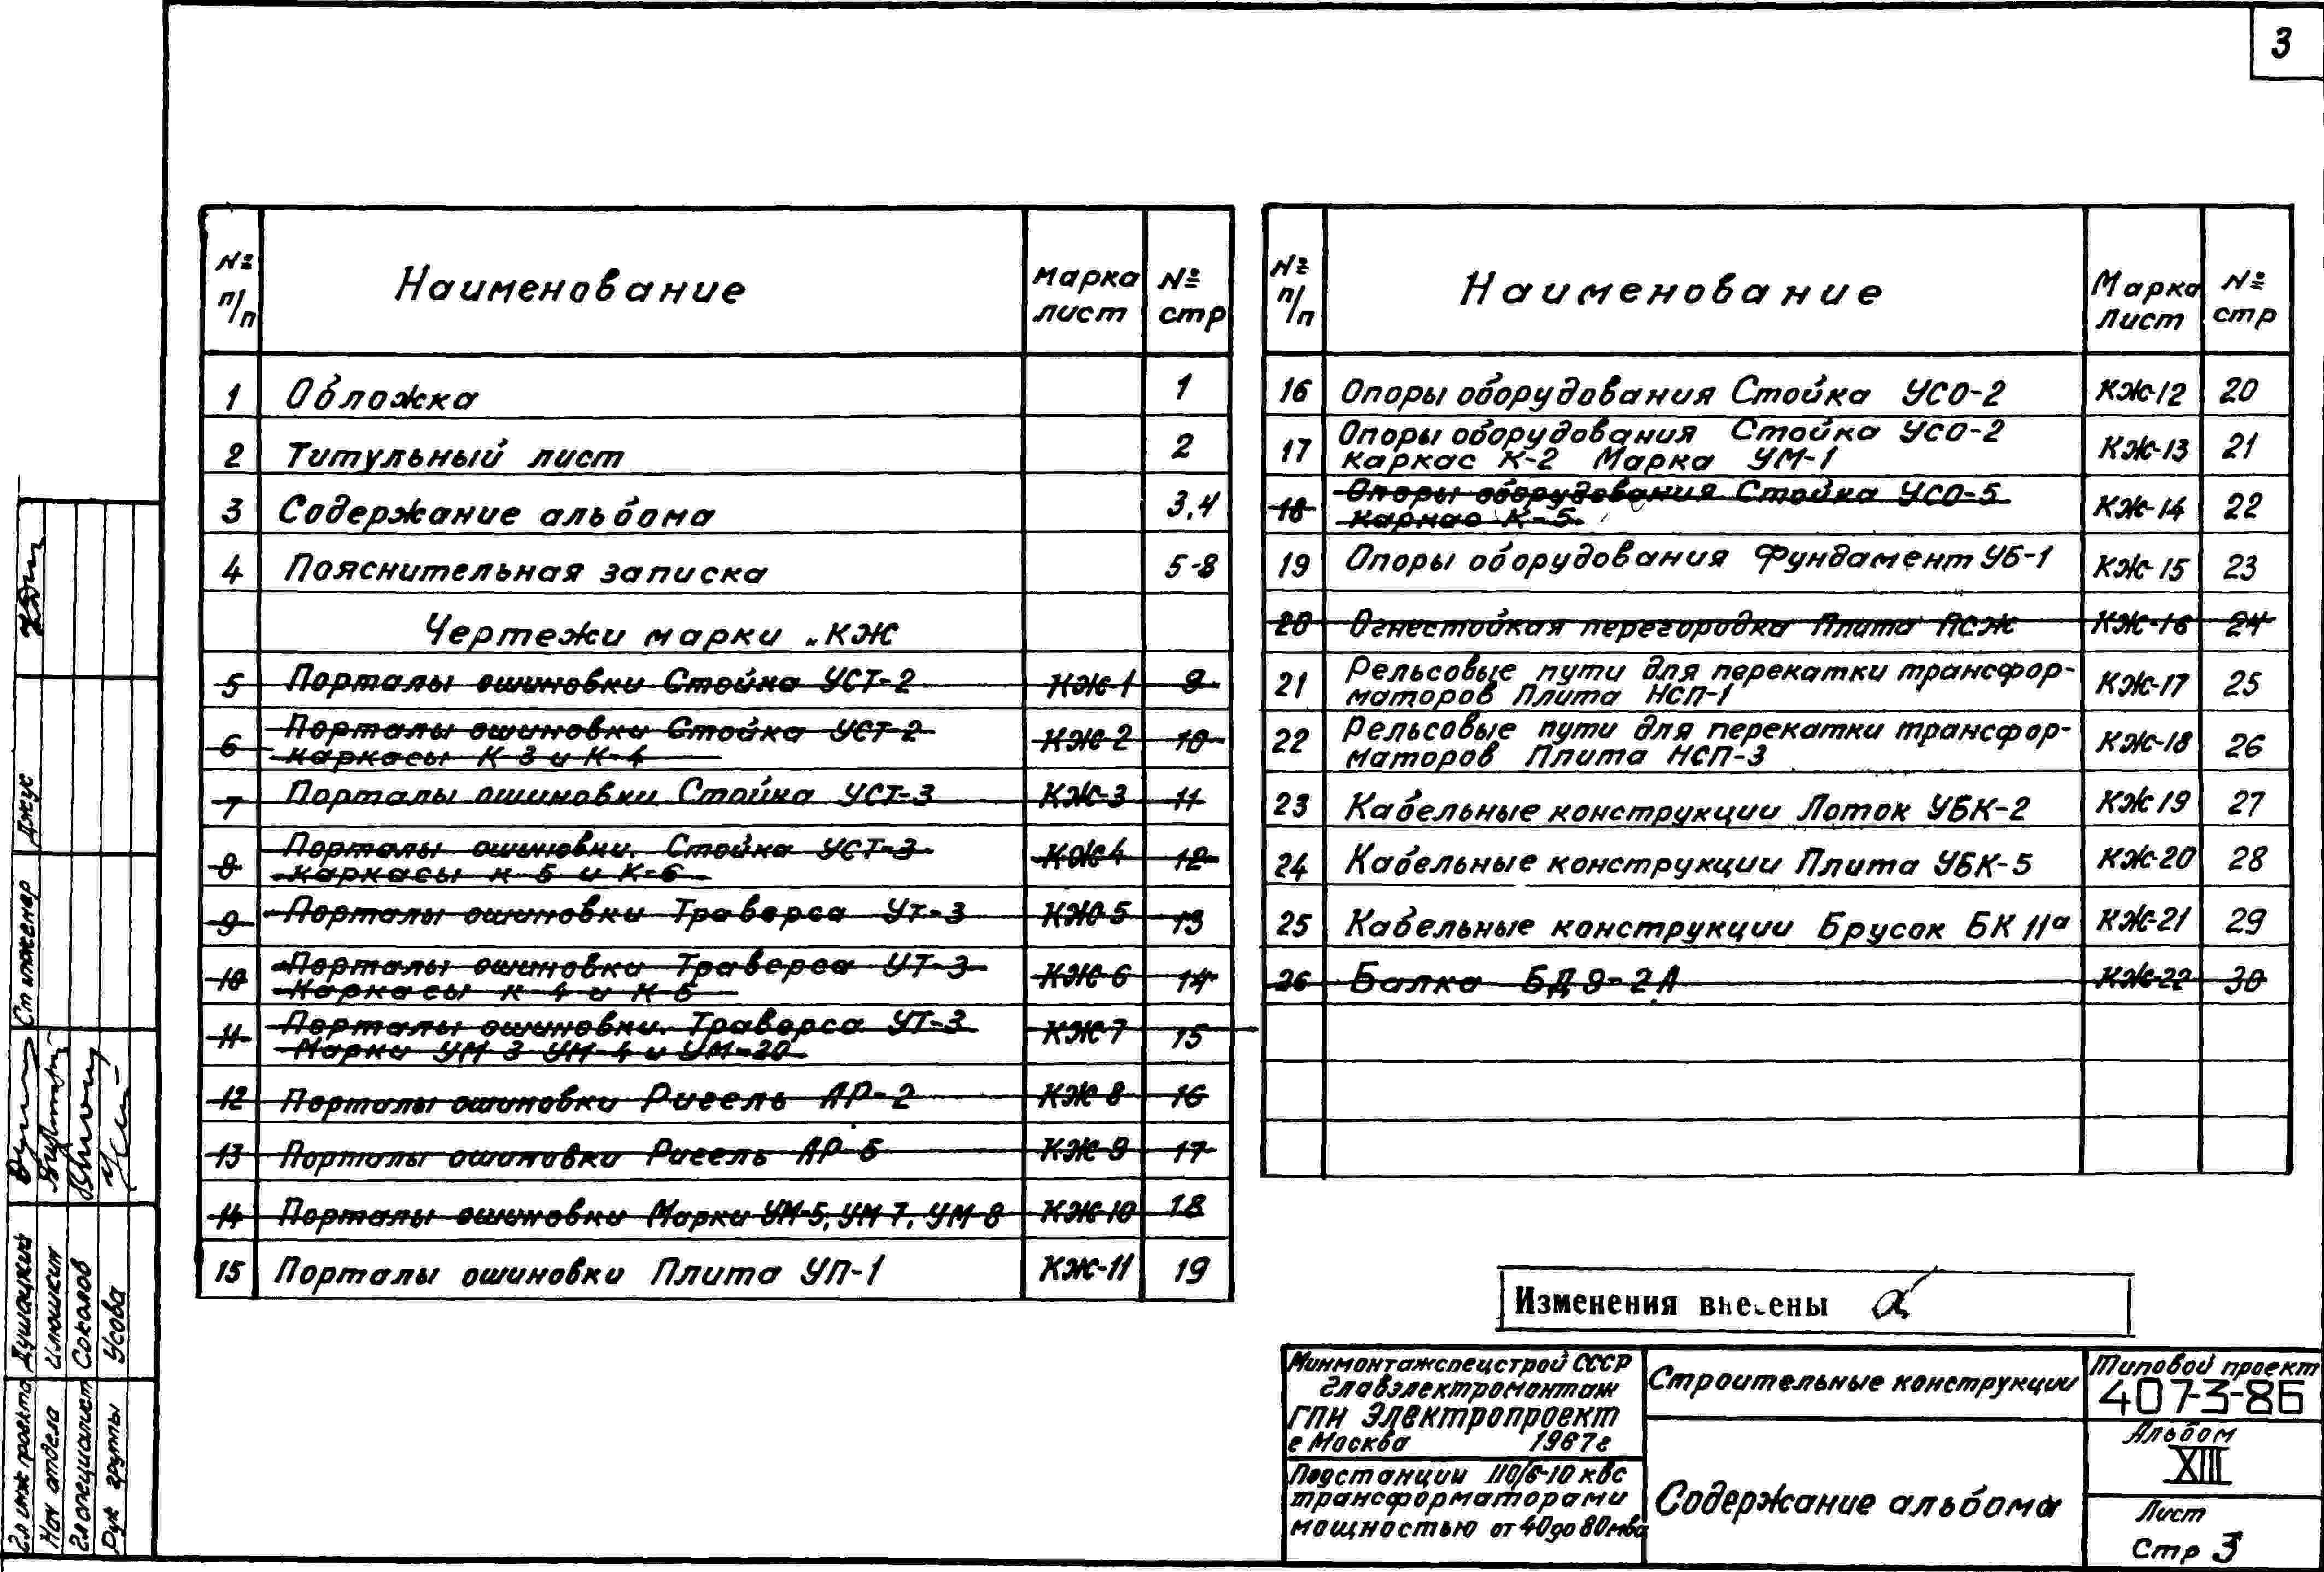 3
№ п/п Наименование Марка лист № стр
1 Обложка 1
2 Титульный лист 2
3 Содержание альбома 3,4
4 Пояснительная записка 5-8
Чертежи марки „КЖ
5 Порталы ошиновки Стойка УСТ-2 КЖ-1 9
6 Порталы ошиновки Стойка УСТ-2 КЖ-2 10
каркасы К-3 и К-4
7 Порталы ошиновки Стойка УСТ-3 КЖ-3 11
8 Порталы ошиновки. Стойка УСТ-3 КЖ-4 12
каркасы К-5 и К-6
9 Порталы ошиновки Траверса УТ-3 КЖ-5 13
10 Порталы ошиновки Траверса УТ-3 КЖ-6 14
Каркасы К-4 и К-5
11 Порталы ошиновки. Траверса УТ-3 КЖ-7 15
Марки УМ-3 УМ-4 и УМ-20
12 Порталы ошиновки Ригель АР-2 КЖ-8 16
13 Порталы ошиновки Ригель АР-6 КЖ-9 17
14 Порталы ошиновки Марки УМ-5, УМ-7, УМ-8 КЖ-10 18
15 Порталы ошиновки Плита УП-1 КЖ-11 19
№ п/п Наименование Марка лист № стр
16 Опоры оборудования Стойка УСО-2 КЖ-12 20
17 Опоры оборудования Стойка УСО-2 КЖ-13 21
каркас К-2 Марка УМ-1
18 Опоры оборудования Стойка УСО-5 КЖ-14 22
каркас К-5.
19 Опоры оборудования Фундамент УБ-1 КЖ-15 23
20 Огнестойкая перегородка Плита ПСЖ КЖ-16 24
21 Рельсовые пути для перекатки трансфор- КЖ-17 25
маторов Плита НСП-1
22 Рельсовые пути для перекатки трансфор- КЖ-18 26
маторов Плита НСП-3
23 Кабельные конструкции Лоток УБК-2 КЖ-19 27
24 Кабельные конструкции Плита УБК-5 КЖ-20 28
25 Кабельные конструкции Брусок БК 11а КЖ-21 29
26 Балка БД 9-2А КЖ-22 30
Изменения внесены
Минмонтажспецстрой СССР
Главэлектромонтаж
ГПИ Электропроект
г Москва 1967г
Подстанции 110/6-10 кв с
трансформаторами
мощностью от 40 до 80 мва
Строительные конструкции
Содержание альбома
Типовой проект
407-3-86
Альбом
XIII
Лист
Стр 3
Гл инж проекта Душацкий
Нач отдела Илюшкин
Гл специалист Соколов
Рук группы Усова
Ст инженер Джус